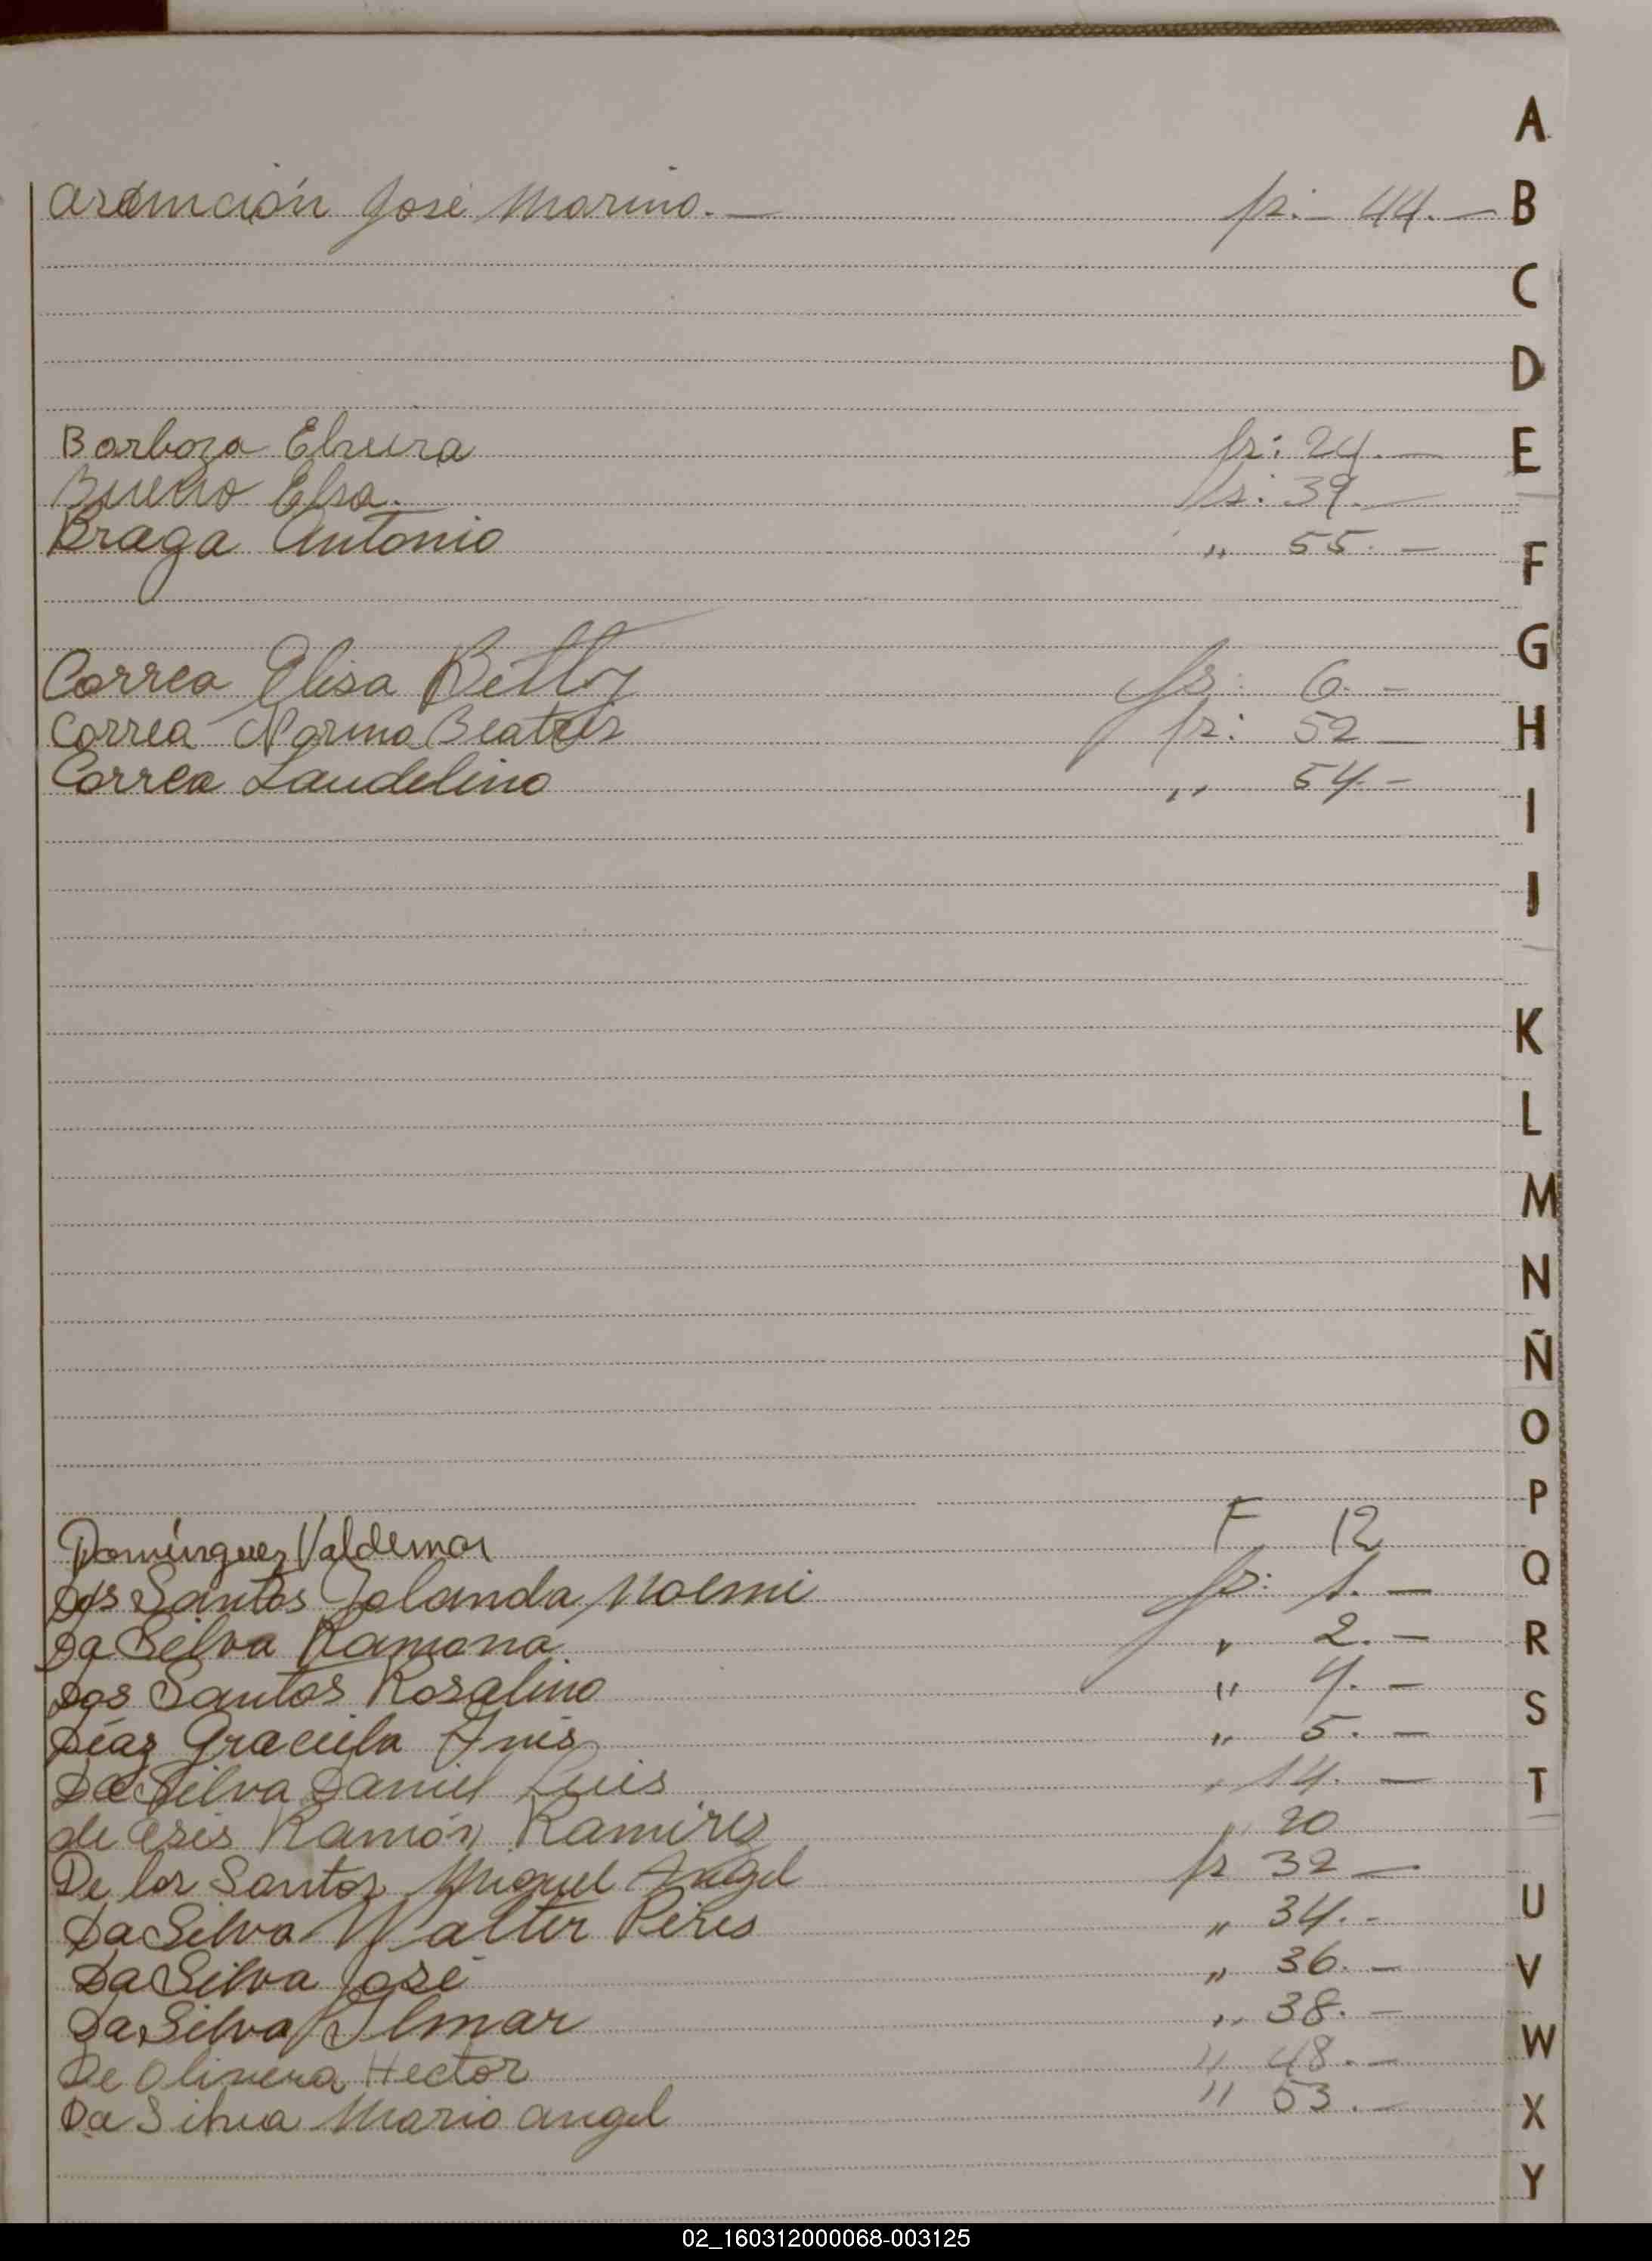 José Marino. — fs: - 44. —
Barboza Elvira fs: 24. —
Bueno Elsa. fs: 39. —
Braga Antonio " 55. —
Correa Elisa Betty fs: 6. -
Correa Norma Beatriz fs: 52 —
Correa Laudelino " 54. -
Domínguez Valdemar F 12
Dos Santos Yolanda Noemi fs: 1. —
Da Silva Ramona " 2. —
Dos Santos Rosalino " 4. —
Díaz Graciela Inés " 5. —
Da Silva Daniel Luis " 14. —
de Asis Ramón Ramírez " 20
De los Santos Miguel Angel fs 32 —
Da Silva Walter Peres " 34. -
Da Silva José " 36. —
Da Silva Ilmar " 38. —
De Olivera Hector " 48. —
Da Silva Mario angel " 53. —
A
B
C
D
E
F
G
H
I
J
K
L
M
N
Ñ
O
P
Q
R
S
T
U
V
W
X
Y
02_160312000068-003125